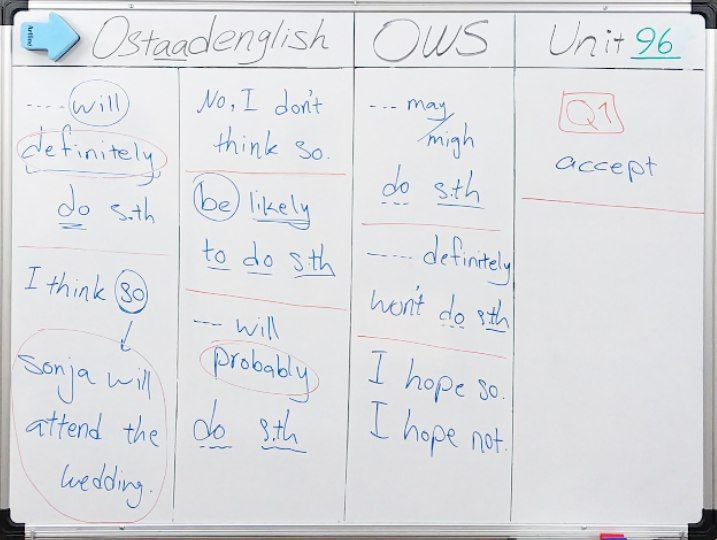 Artline
Ostaadenglish
OWS
Unit 96
---- will
definitely
do s.th
I think so
sonja will
attend the
wedding.
No, I don't
think so.
be likely
to do s.th
--- will
probably
do s.th
--- may
/migh
do s.th
---- definitely
won't do sth
I hope so.
I hope not.
Q1
accept